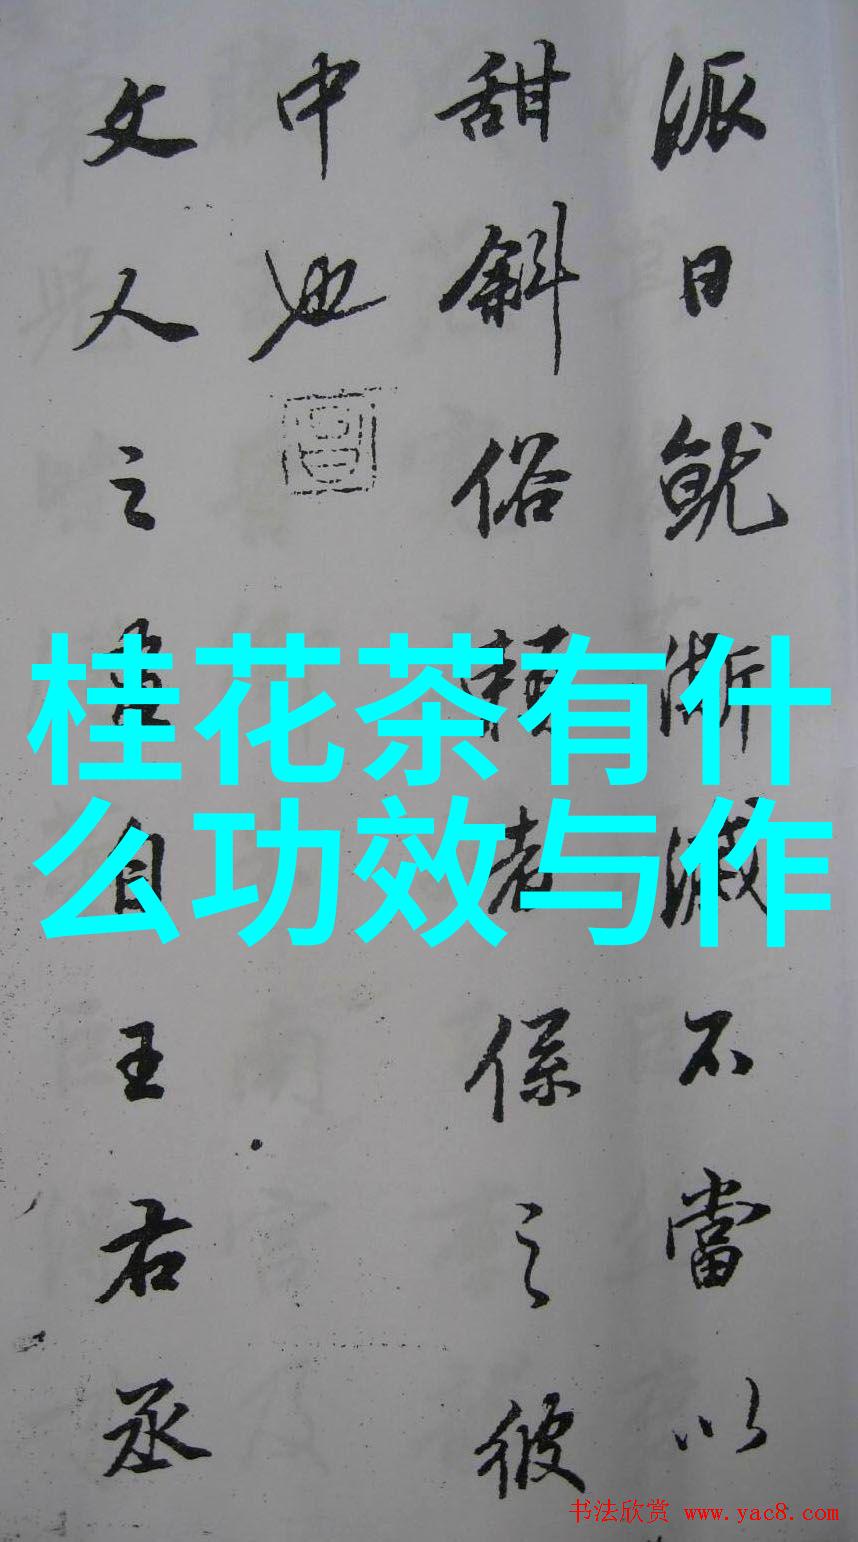 桂花茶有什
么功效与作
派日就澌滅不當以
甜斜俗賴者係之彼
中也
文人之畫自王右丞
书法欣赏 www.yac8.com